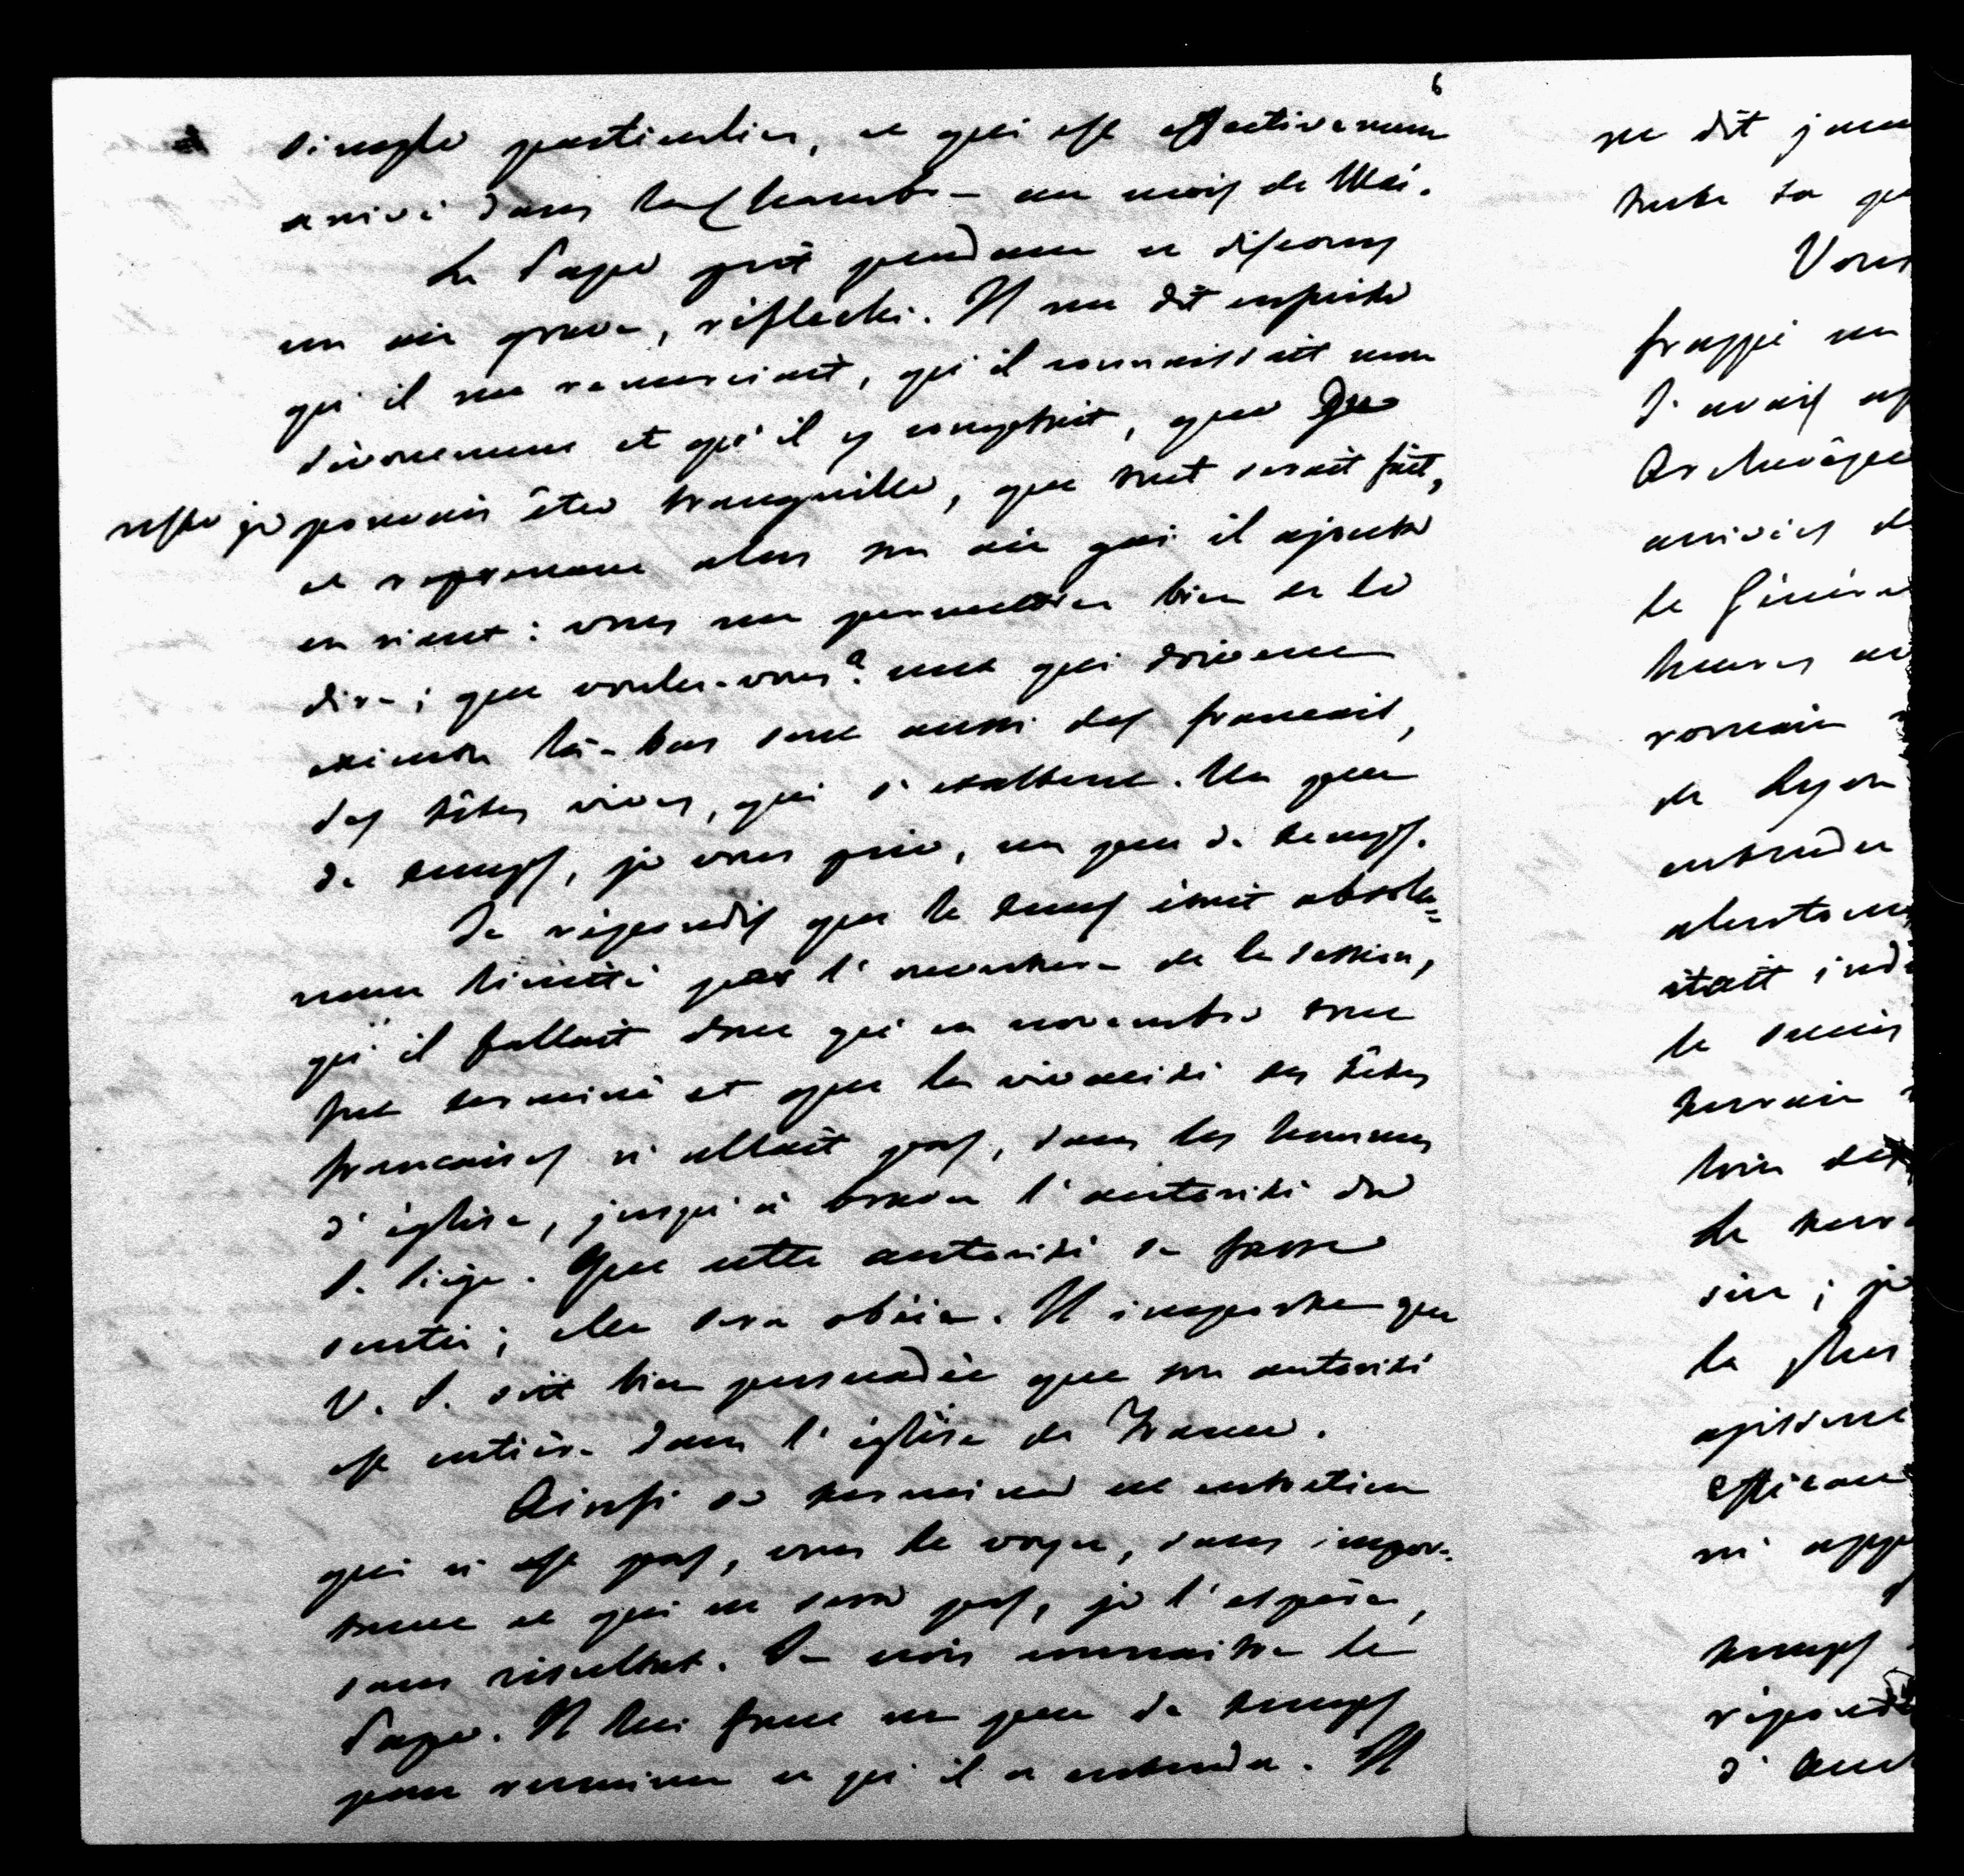 6
simple particulier, ce qui est effectivement
arrivé dans la Chambre au mois de Mai.
Le Pape prit pendant ce discours
un air grave, réfléchi. Il me dit ensuite
qu'il me remerciait, qu'il connaissait mon
dévouement et qu'il y comptait, que Du
reste je pouvais être tranquille, que tout serait fait,
et reprenant alors son air gai il ajouta
en riant : vous me permettrez bien de le
dire ; que voulez-vous? ceux qui doivent
exécuter là-bas sont aussi des français,
des têtes vives, qui s'exaltent. Un peu
de temps, je vous prie, un peu de temps.
Je répondis que le temps était absolu=
ment limité par l'ouverture de la session,
qu'il fallait donc qu'en novembre tout
fut terminé et que la vivacité des têtes
françaises n'allait pas, dans les hommes
d'église, jusqu'à braver l'autorité du
S. Siège. Que cette autorité se fasse
sentir ; elle sera obéie. Il importe que
V. S. soit bien persuadée que son autorité
est entière dans l'église de France.
Ainsi se termina cet entretien
qui n'est pas, vous le voyez, sans impor-
tance et qui ne sera pas, je l'espère,
sans résultat. Je crois connaitre le
Pape. Il lui faut un peu de temps
pour ruminer ce qu'il a entendu. Il
me dit
Vous
frappé un
J'avais
arrivés
le Général
romain
de Lyon
entendu
était
le succès
terrain
loin des
la plus
temps